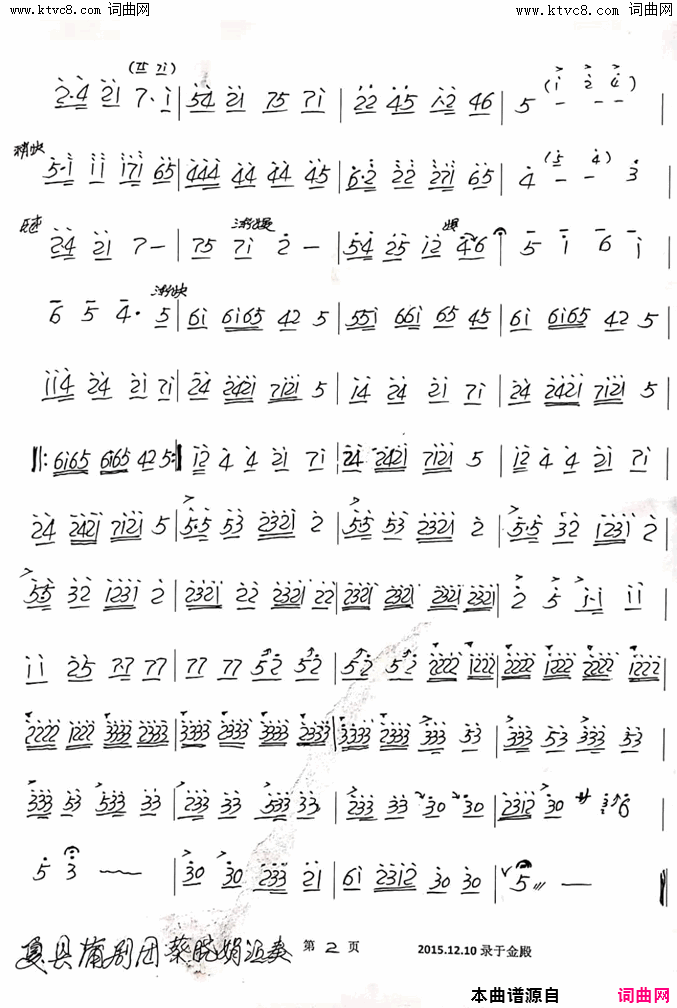 www.ktvc8.com 词曲网 www.ktvc8.com 词曲网
2·4 21 7·i | 54 21 75 7i | 22 45 1·2 46 | 5 — — — |
稍快 5·i ii i7i 65 | 444 44 44 45 | 6·2 22 27i 65 | 4 — — 3
24 21 7 — | 75 7i 渐慢 2 — | 54 25 i2 慢 46 | 5 i 6 i
6 5 4· 渐快 5 | 6i 6i65 42 5 | 55i 66i 65 45 | 6i 6i65 42 5 |
ii4 24 2i 7i | 24 242i 7i2i 5 | i4 24 2i 7i | 24 242i 7i2i 5 |
‖: 6i65 6i65 42 5 :‖ i2 4 4 2i 7i | 24 242i 7i2i 5 | i2 4 4 2i 7i |
24 242i 7i2i 5 | 5·5 53 232i 2 | 5·5 53 232i 2 | 5·5 32 i23i 2 |
5·5 32 i23i 2 | 232i 22 232i 22 | 232i 232i 232i 232i | 2 5 i·i ii |
ii 25 77 77 | 77 77 52 52 | 52 52 2222 i222 | 2222 i222 2222 i222 |
2222 i222 3333 2333 | 3333 2333 3333 2333 | 3333 2333 333 53 | 333 53 333 53 |
333 53 533 33 | 233 33 533 33 | 233 33 30 30 | 23i2 30 36 |
5 3 | 30 30 233 2i | 6i 23i2 30 30 | 5 — ‖
夏县蒲剧团蔡晓娟演奏 第 2 页 2015.12.10 录于金殿
本曲谱源自 词曲网